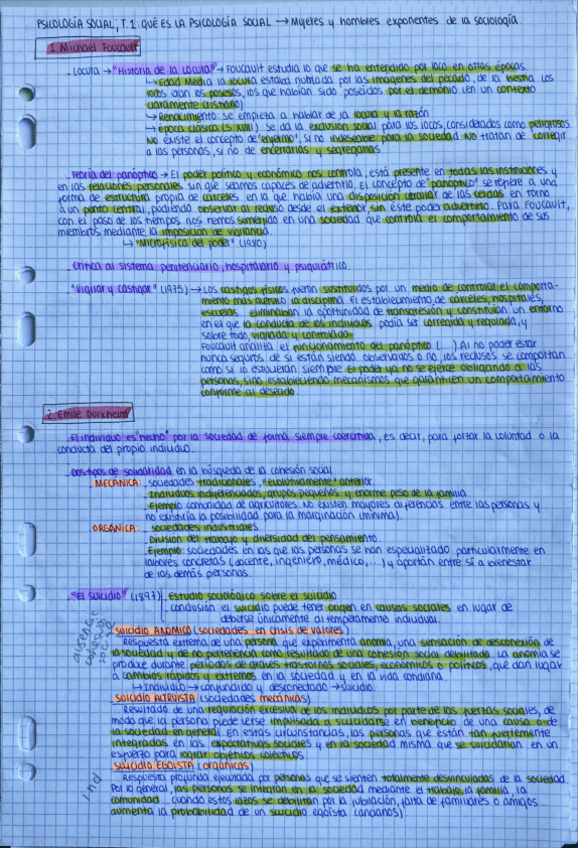 PSICOLOGÍA SOCIAL, T. 1: QUÉ ES LA PSICOLOGÍA SOCIAL → Mujeres y hombres exponentes de la sociología
1. Michael Foucault
- Locura → "Historia de la Locura" → Foucault estudia lo que se ha entendido por loco en otras épocas.
↳ Edad Media la locura estaba nutrida por las imágenes del pecado, de la bestia. Los
locos eran los posesos, los que habían sido poseídos por el demonio (en un contexto
claramente cristiano)
↳ Renacimiento: se empieza a hablar de la locura y la razón
↳ Época clásica (S. XVIII) se da la exclusión social para los locos, considerados como peligrosos
No existe el concepto de "enfermo", si no indeseable para la sociedad. No tratan de corregir
a las personas, si no de encerrarlas y segregarlas
- Teoría del panóptico → El poder político y económico nos controla, está presente en todas las instituciones y
en las relaciones personales sin que seamos capaces de advertirlo. El concepto de "panóptico" se refiere a una
forma de estructura propia de cárceles en la que había una disposición circular de las celdas en torno
a un punto central, pudiendo observar al recluso desde el exterior sin éste poder advertirlo. Para Foucault,
con el paso de los tiempos nos hemos sumergido en una sociedad que controla el comportamiento de sus
miembros mediante la imposición de vigilancia
↳ "Microfísica del poder" (1980)
- Crítica al sistema penitenciario, hospitalario y psiquiátrico.
- "Vigilar y castigar" (1975) → Los castigos físicos fueron sustituidos por un medio de controlar el comporta-
miento más augusto la disciplina. El establecimiento de cárceles, hospitales,
escuelas eliminaban la oportunidad de transgresión y constituían un entorno
en el que la conducta de los individuos podía ser corregida y regulada, y
sobre todo, vigilada y controlada.
Foucault analiza el funcionamiento del panóptico (...) Al no poder estar
nunca seguros de si están siendo observados o no, los reclusos se comportan
como si lo estuvieran siempre. El poder ya no se ejerce obligando a las
personas, sino estableciendo mecanismos que garanticen un comportamiento
conforme al deseado.
2. Emile Durkheim
- El individuo es "hecho" por la sociedad de forma siempre coercitiva, es decir, para forzar la voluntad o la
conducta del propio individuo.
- Dos tipos de solidaridad en la búsqueda de la cohesión social
MECÁNICA: - sociedades tradicionales, "evolutivamente" anterior
- Individuos indiferenciados, grupos pequeños y enorme peso de la familia
- Ejemplo: comunidad de agricultores. No existen mayores diferencias entre las personas y
no existiría la posibilidad para la marginación (mínima).
ORGÁNICA: - sociedades industriales
- División del trabajo y diversidad del pensamiento.
- Ejemplo: sociedades en las que las personas se han especializado particularmente en
labores concretas (docente, ingeniero, médico,...) y aportan entre sí a bienestar
de las demás personas.
- "El suicidio" (1897) - Estudio sociológico sobre el suicidio
- conclusión: el suicidio puede tener origen en causas sociales en lugar de
deberse únicamente al temperamento individual.
SUICIDIO ANÓMICO (sociedades en crisis de valores)
Respuesta extrema de una persona que experimenta anomia, una sensación de desconexión de
la sociedad y de no pertenencia como resultado de una cohesión social debilitada. La anomia se
produce durante periodos de graves trastornos sociales, económicos o políticos, que dan lugar
a cambios rápidos y extremos en la sociedad y en la vida cotidiana.
↳ Individuo → confundido y desconectado → suicidio.
SUICIDIO ALTRUISTA (sociedades mecánicas)
Resultado de una regulación excesiva de los individuos por parte de las fuerzas sociales, de
modo que la persona puede verse impulsada a suicidarse en beneficio de una causa o de
la sociedad en general. En estas circunstancias, las personas que están tan fuertemente
integradas en las expectativas sociales y en la sociedad misma que se suicidarían en un
esfuerzo para lograr objetivos colectivos
SUICIDIO EGOÍSTA (orgánicas)
Respuesta profunda ejecutada por personas que se sienten totalmente desvinculadas de la sociedad.
Por lo general, las personas se integran en la sociedad mediante el trabajo, la familia, la
comunidad... cuando estos lazos se debilitan por la jubilación, falta de familiares o amigos
aumenta la probabilidad de un suicidio egoísta (ancianos)